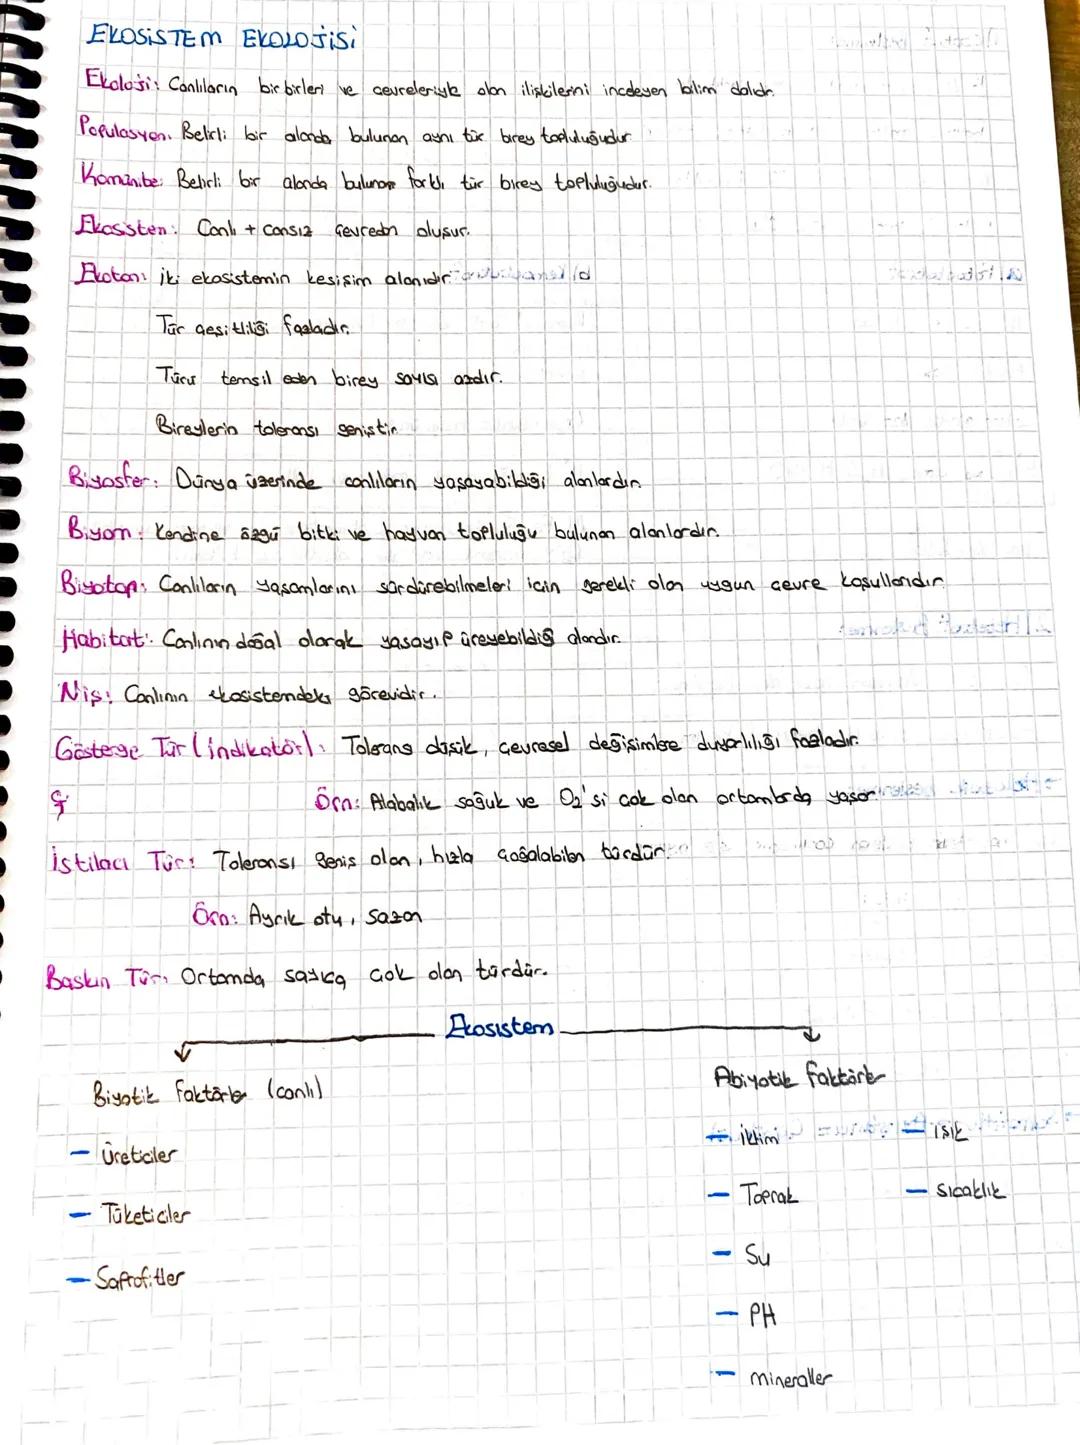 EKOSİSTEM EKOLOJİSİ
Ekoloji: Canlıların birbirleri ve çevreleriyle olan ilişkilerini inceleyen bilim dalıdır.
Populasyon: Belirli bir alanda bulunan aynı tür birey topluluğudur.
Komünite: Belirli bir alanda bulunan farklı tür birey topluluğudur.
Ekosistem: Canlı + cansız çevreden oluşur.
Ekoton: İki ekosistemin kesişim alanıdır.
Tür çeşitliliği fazladır.
Türü temsil eden birey sayısı azdır.
Bireylerin toleransı geniştir.
Biyosfer: Dünya üzerinde canlıların yaşayabildiği alanlardır.
Biyom: Kendine özgü bitki ve hayvan topluluğu bulunan alanlardır.
Biyotop: Canlıların yaşamlarını sürdürebilmeleri için gerekli olan uygun çevre koşullarıdır.
Habitat: Canlının doğal olarak yaşayıp üreyebildiği alandır.
Niş: Canlının ekosistemdeki görevidir.
Gösterge Tür (indikatör): Tolerans düşük, çevresel değişimlere duyarlılığı fazladır.
Örn: Alabalık soğuk ve O2'si çok olan ortamlarda yaşar.
İstilacı Tür: Toleransı geniş olan, hızla çoğalabilen türdür.
Örn: Ayrık otu, sazan
Baskın Tür: Ortamda sayıca çok olan türdür.
Ekosistem
Biyotik faktörler (canlı)
Abiyotik faktörler
- Üreticiler
- Tüketiciler
- Saprofitler
- İklim
- Işık
- Toprak
- Sıcaklık
- Su
- PH
- mineraller